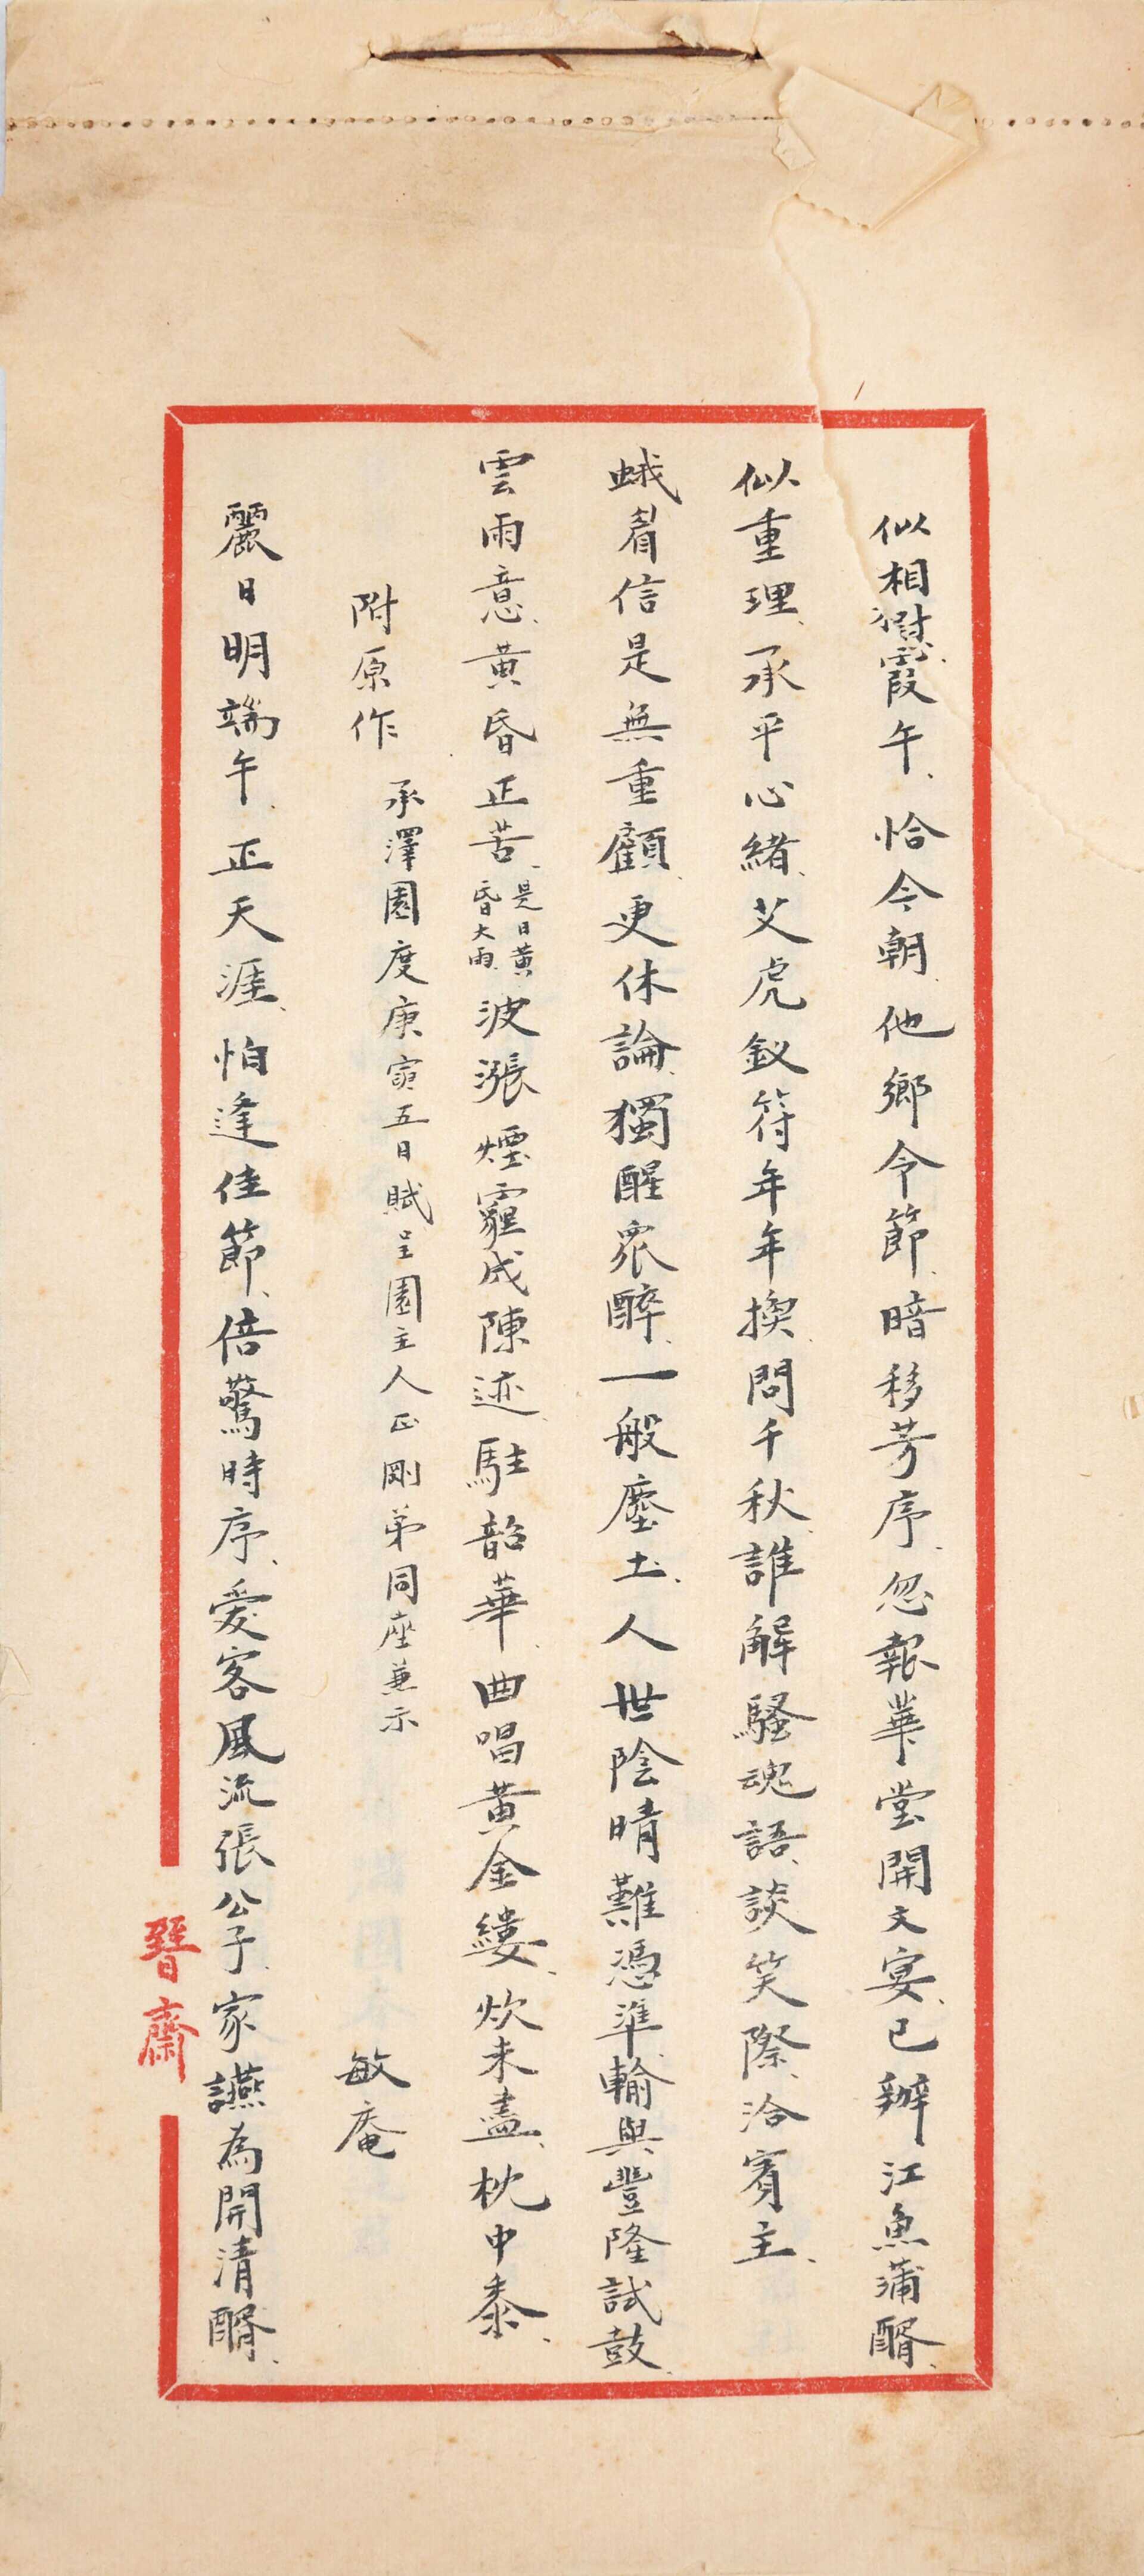 似相慰霞午、恰今朝、他鄉令節、暗移芳序、忽報華堂開文宴、已辦江魚蒲醑、
似重理、承平心緒、艾虎釵符年年換、問千秋、誰解騷魂語、談笑際、洽賓主、
蛾眉信是無重顧、更休論、獨醒眾醉、一般塵土、人世陰晴難憑準、輸與豐隆試鼓、
雲雨意、黃昏正苦、是日黃昏大雨、波漲煙霾成陳迹、駐韶華、曲唱黃金縷、炊未盡、枕中黍、
附原作 承澤園度庚寅五日賦呈園主人正剛弟同座兼示 敏庵
麗日明端午、正天涯、怕逢佳節、倍驚時序、愛客風流張公子、家讌為開清醑、
朁齋